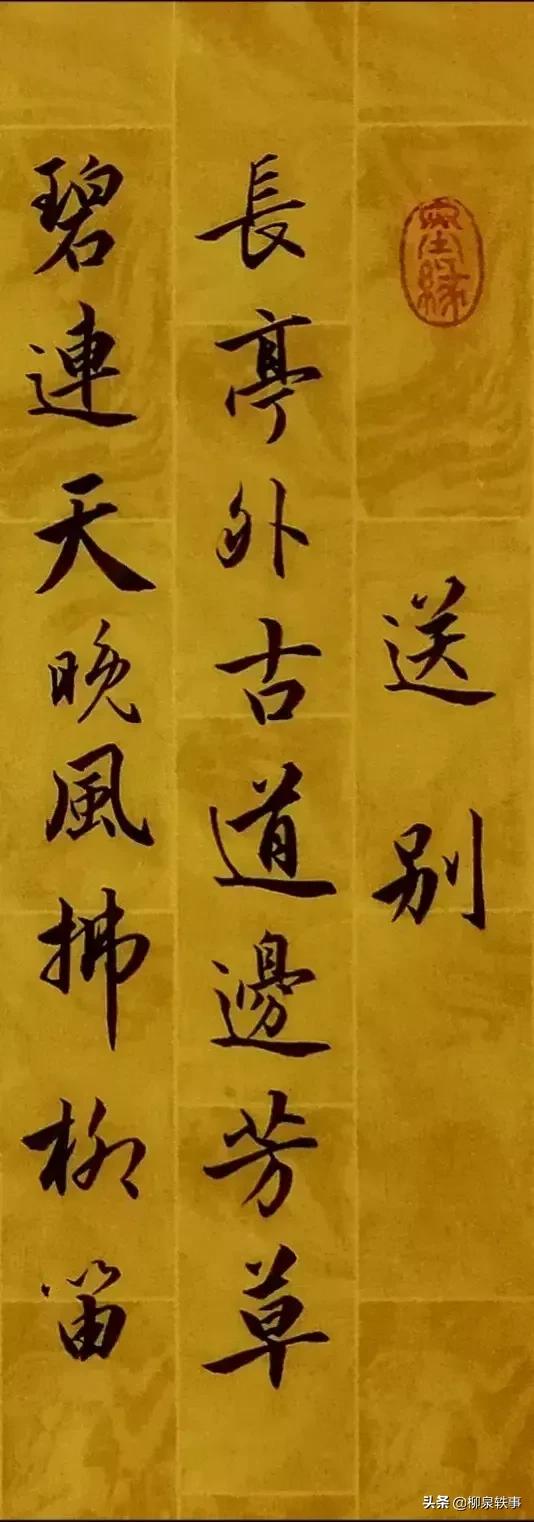 送别
長亭外古道邊芳草
碧連天晚風拂柳笛
头条 @柳泉轶事